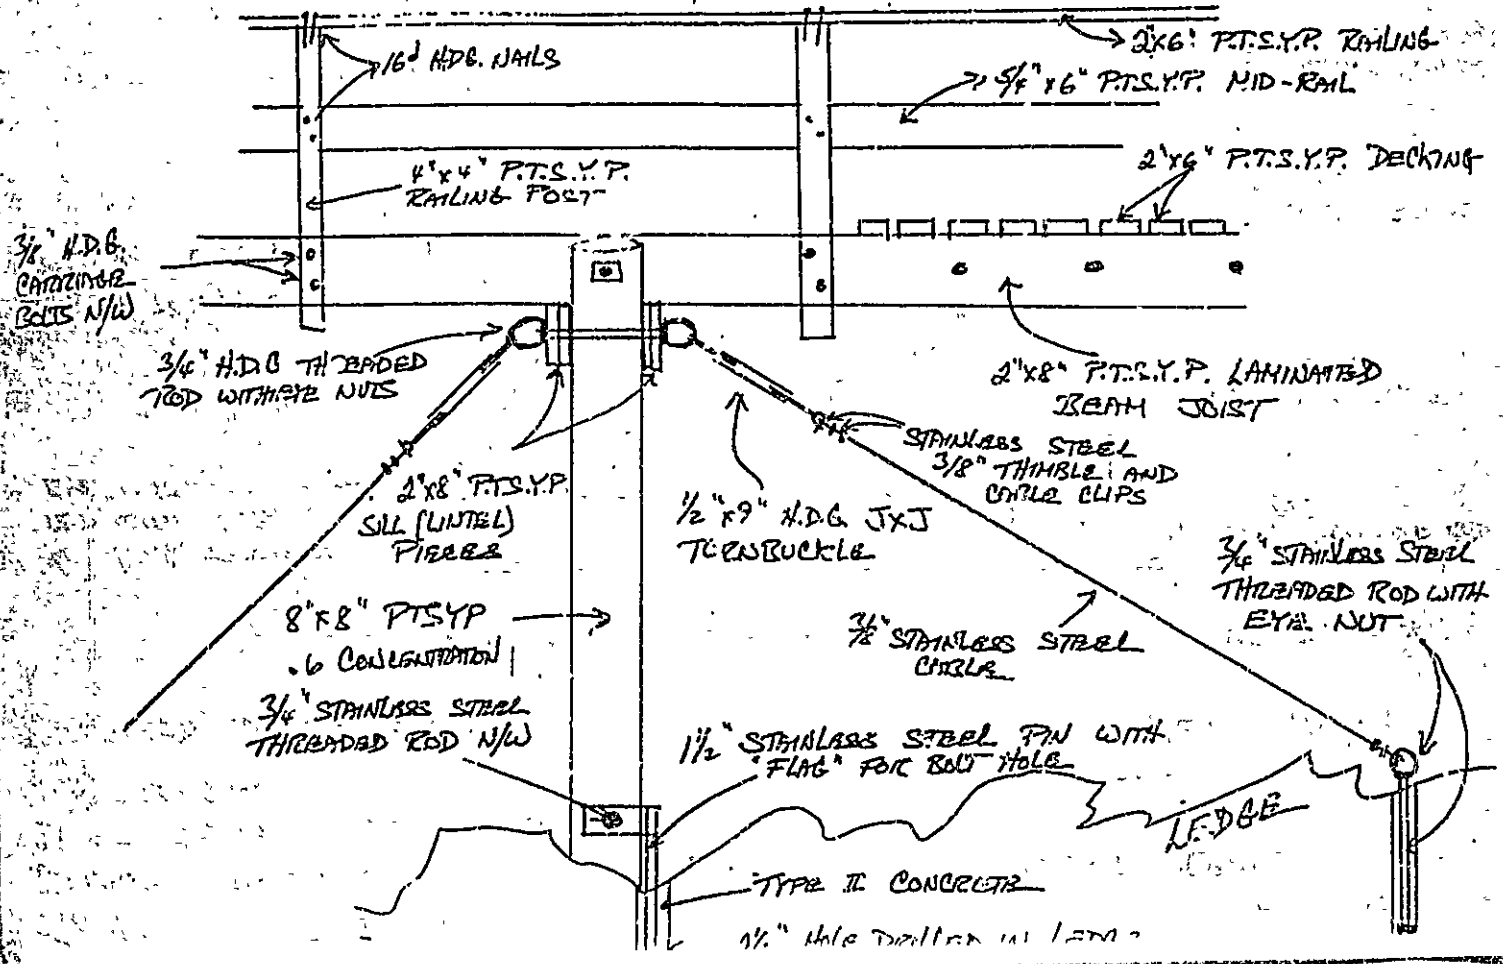 2"x6" P.T.S.Y.P. RAILING
16d H.D.G. NAILS
5/4" x 6" P.T.S.Y.P. MID-RAIL
2"x6" P.T.S.Y.P. DECKING
4"x4" P.T.S.Y.P.
RAILING POST
3/8" H.D.G.
CARRIAGE
BOLTS N/W
3/4" H.D.G THREADED
ROD WITH EYE NUTS
2"x8" P.T.S.Y.P. LAMINATED
BEAM JOIST
STAINLESS STEEL
3/8" THIMBLE AND
CABLE CLIPS
2"x8" P.T.S.Y.P.
SILL (LINTEL)
PIECES
1/2"x9" H.D.G. JxJ
TURNBUCKLE
3/4" STAINLESS STEEL
THREADED ROD WITH
EYE NUT
8"x8" PTSYP
.6 CONCENTRATION
3/8" STAINLESS STEEL
CABLE
3/4" STAINLESS STEEL
THREADED ROD N/W
1 1/2" STAINLESS STEEL PIN WITH
"FLAG" FOR BOLT HOLE
LEDGE
TYPE II CONCRETE
Hole Drilled in